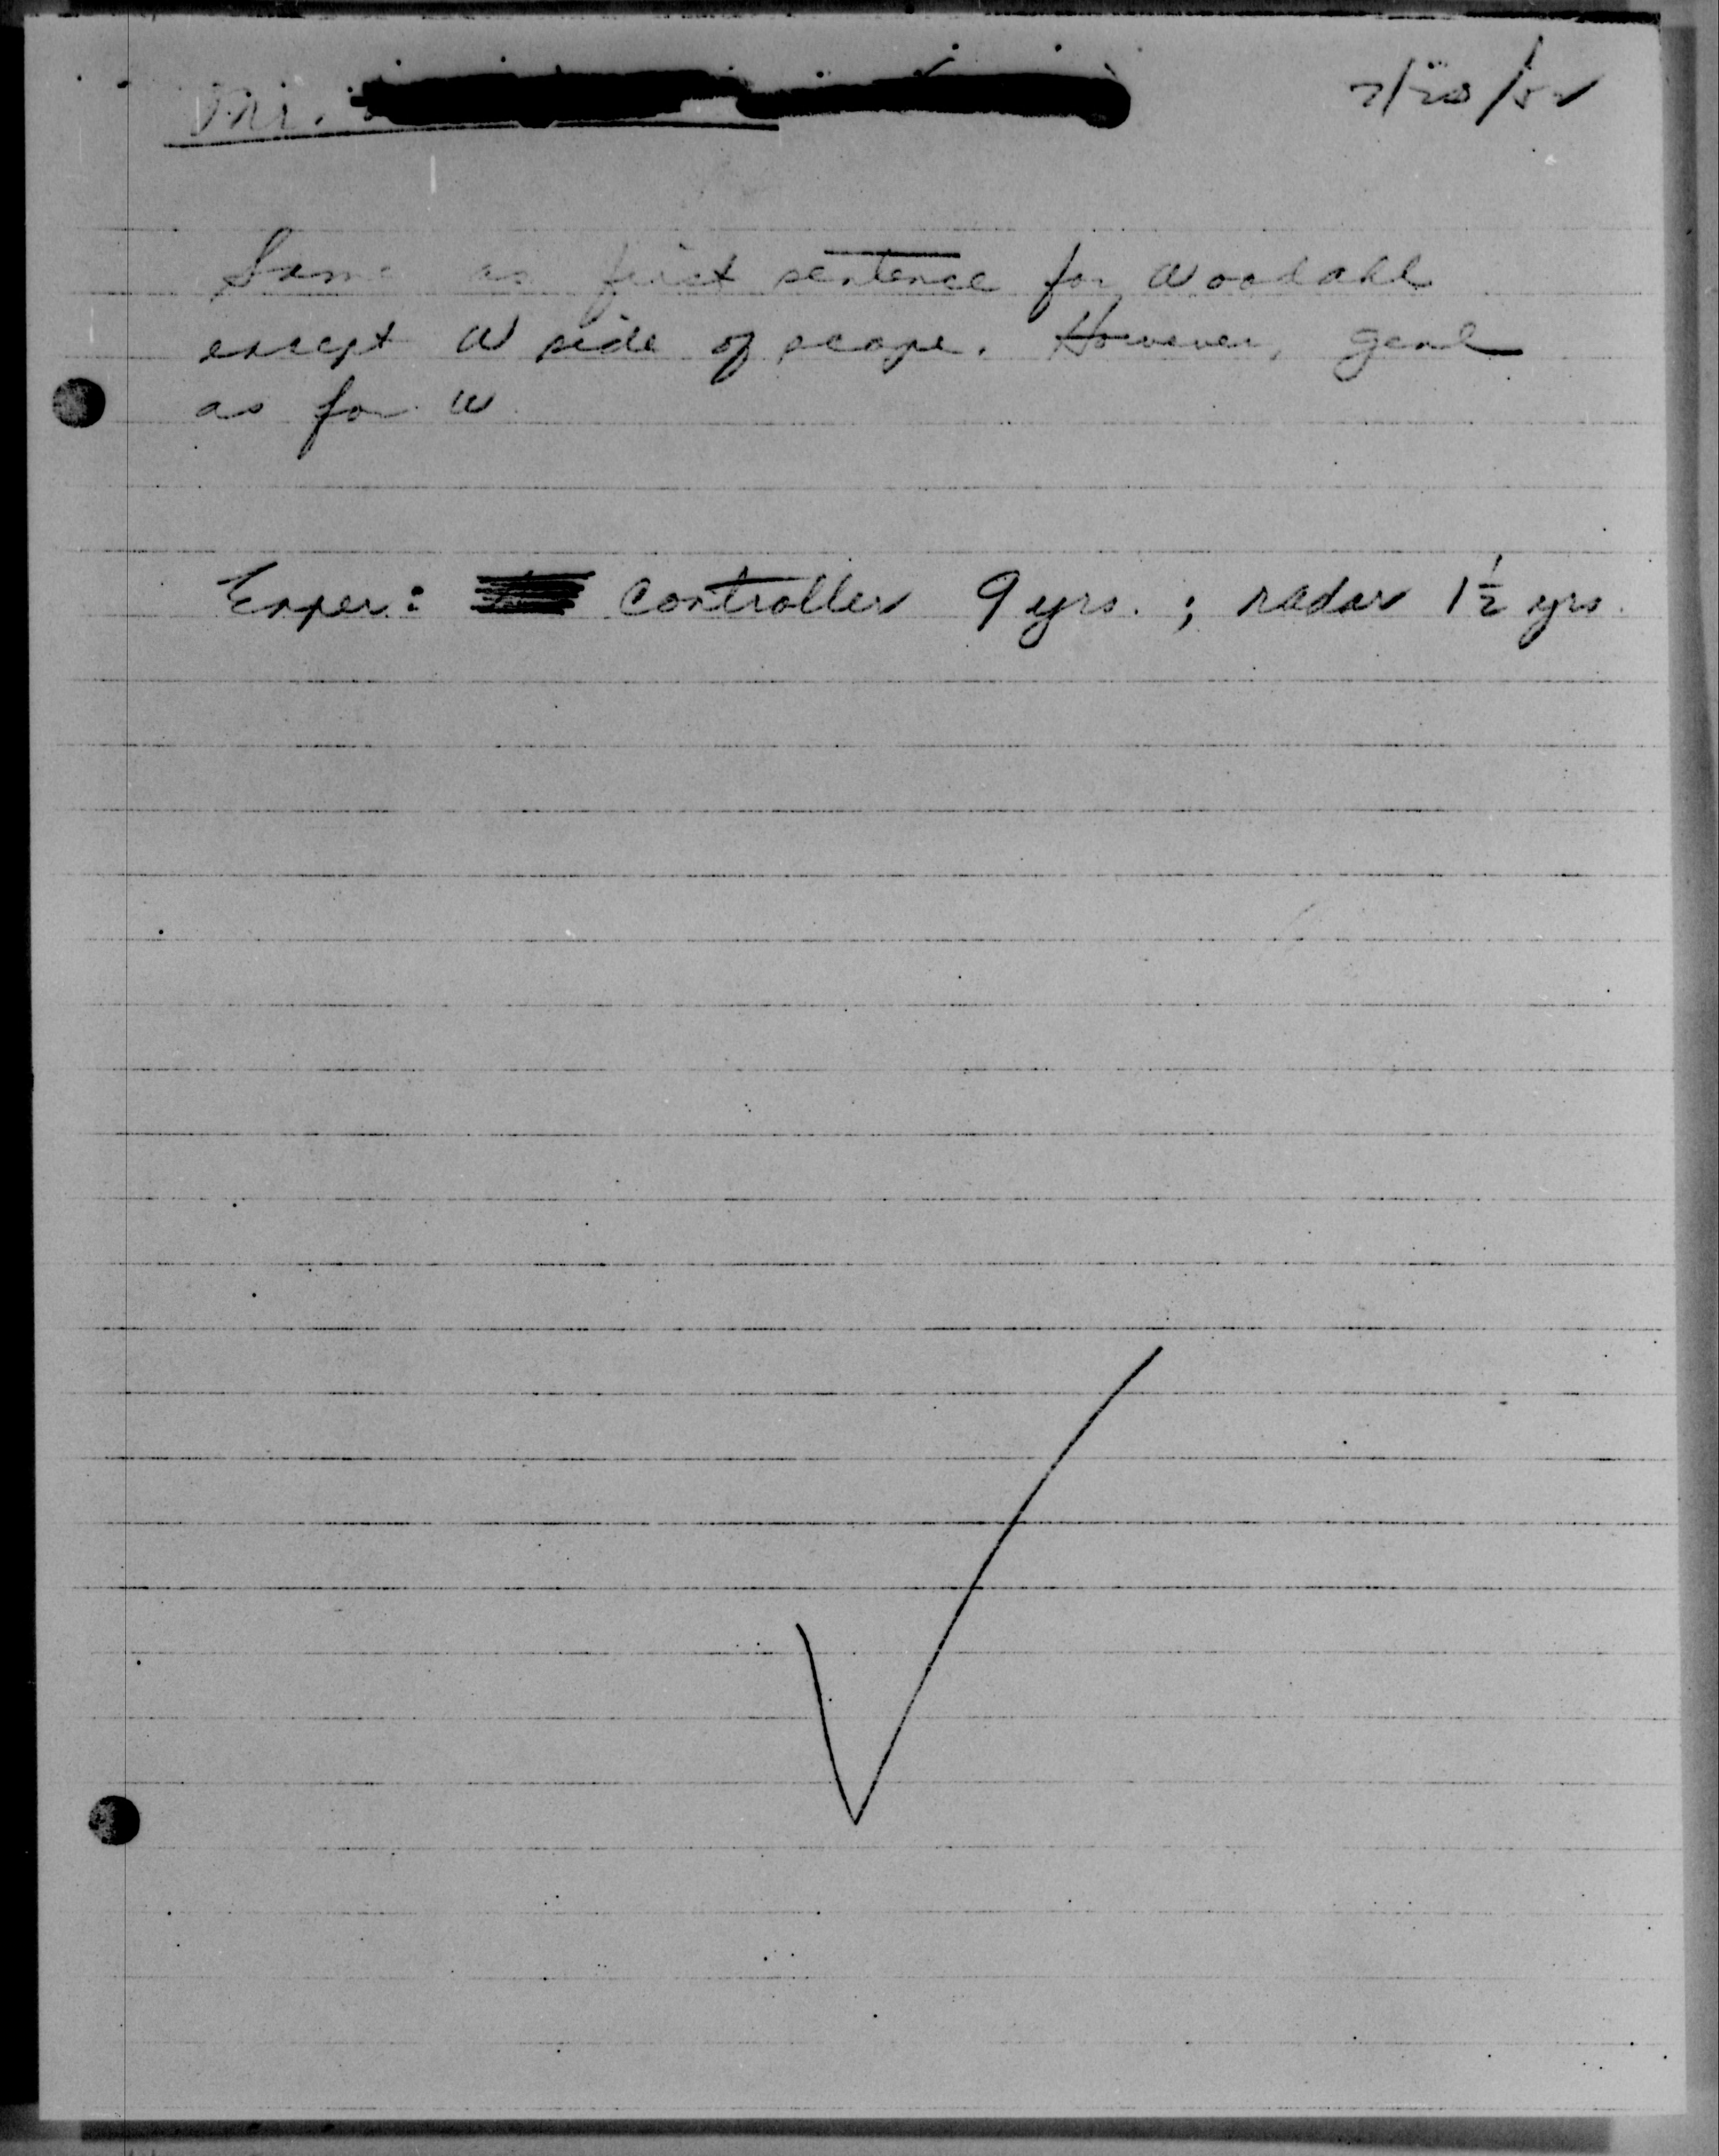 Mr. 7/20/52
Same as first sentence for Woodahl
except W side of scope. However, genl
as for W
Exper: Controller 9 yrs. ; radar 1½ yrs.